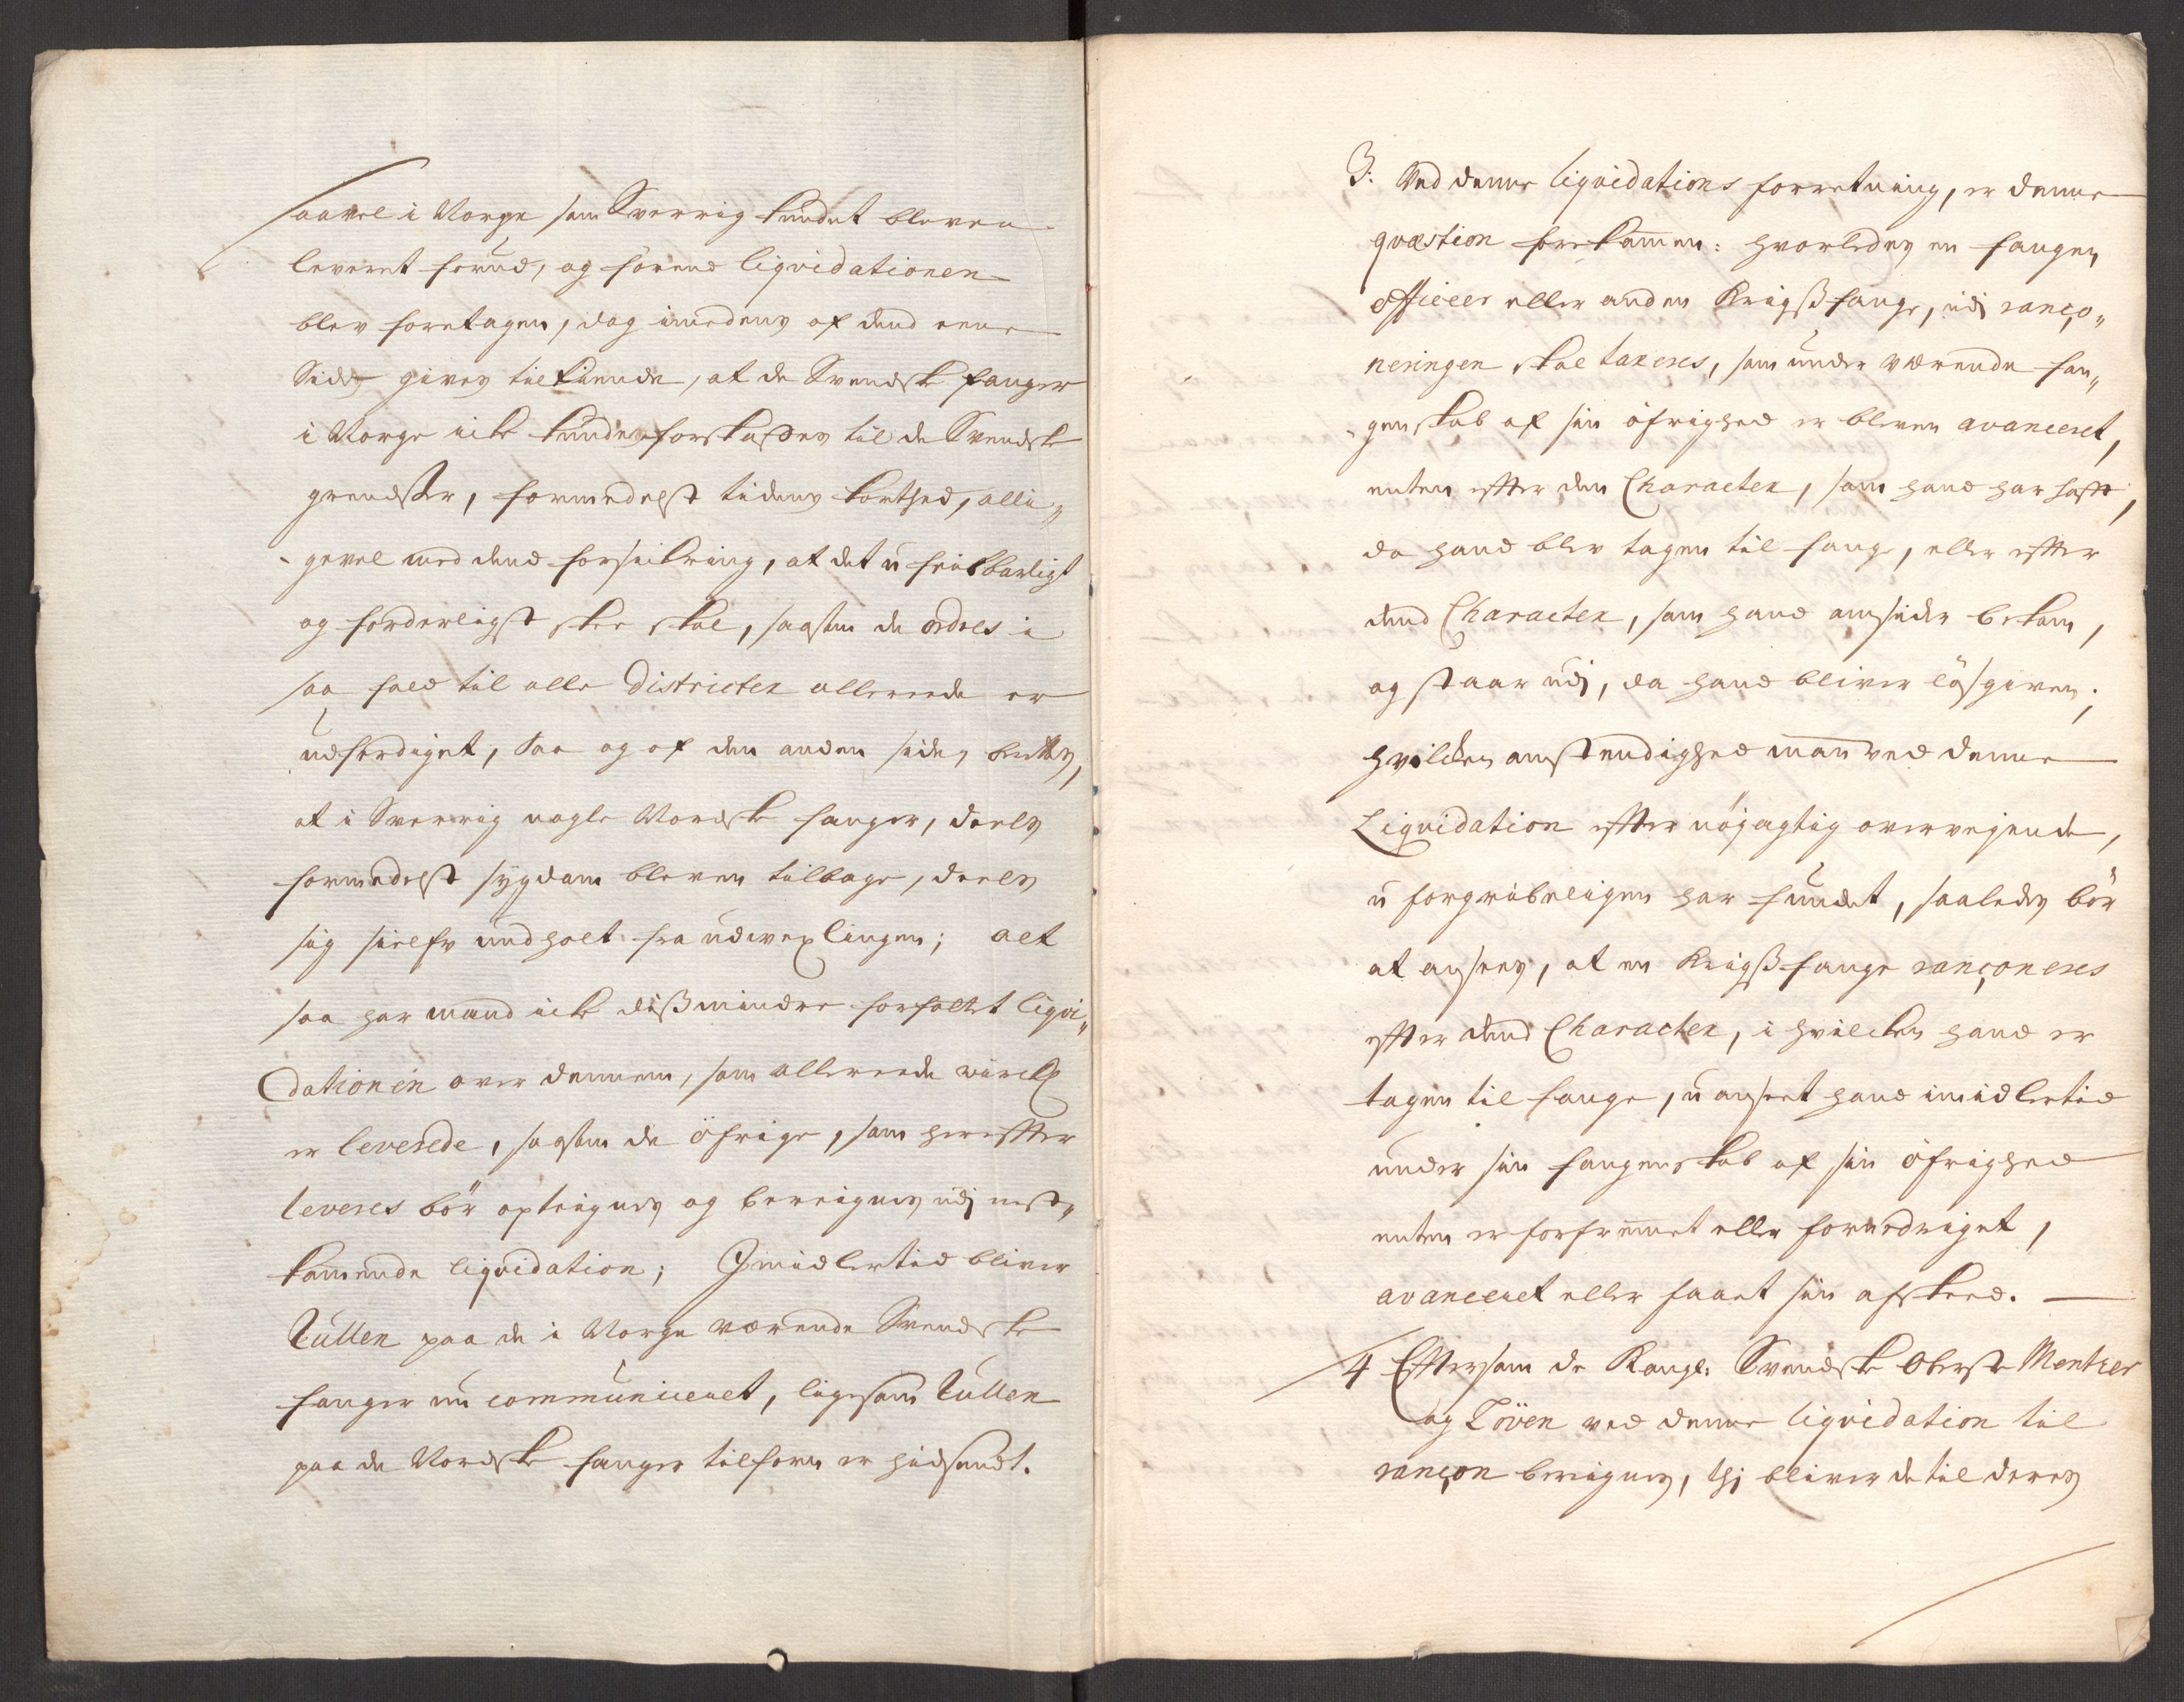 saavel i Norge som Sverrig kundet bleven
leveret forud, og førend liqvidationen
blev foretagen, dog imedens af dend eene
Side gives tilkiende, at de Svendske fanger
i Norge icke kunde forskaffes til de Svendske
grendser, formedelst tidens korthed, alli„
gevel med dend forsikring, at det ufeilbarligt
og forderligst skee skal, saasom de ordres i
saa fald til alle Districter allereede er
udferdiget, Saa og af den anden side,
at i Sverrig nogle Norske fanger, deels
formedelst sygdom bleven tilbage, deels
sig sielfv undholt fra udvexlingen; alt
saa har mand icke dismindre forfattet liqvi„
dationen over dennem, som allereede würckl:
er leverede, saasom de öfrige, som herefter
leveres bör opteignes og bereignes udj nest„
kommende liqvidation; Imidlertid bliver
Rullen paa de i Norge værende Svendske
fanger nu communiceret, ligesom Rullen
paa de Norske fanger tilforn er hidsendt.
3. Ved denne liqvidations forretning, er denne
qvæstion forekommen: hvorledes en fangen
officeer eller anden Krigsfange, udj ranço„
neringen skal taxeres, som under værende fan„
genskab af sin öfrighed er bleven avanceret,
enten efter den Character, som hand har haft,
da hand blev tagen til fange, eller efter
dend Character, som hand omsider bekom,
og staar udj, da hand bliver lösgiven;
hvilcken omstendighed man ved denne
Liqvidation efter nöjagtig overvejende,
uforgribeligen har fundet, saaledes bör
at ansees, at en Krigsfange rançoneres
efter dend Character, i hvilcken hand er
tagen til fange, uanseet hand imidlertid
under sin fangenskab af sin öfrighed
enten er forfremmet eller fornedriget,
avanceret eller faaet sin afskeed.
4 Eftersom de Kongl: Svendske Oberster Mentzer
og Löven ved denne liqvidation til
rançon bereignes, thj bliver de til deres